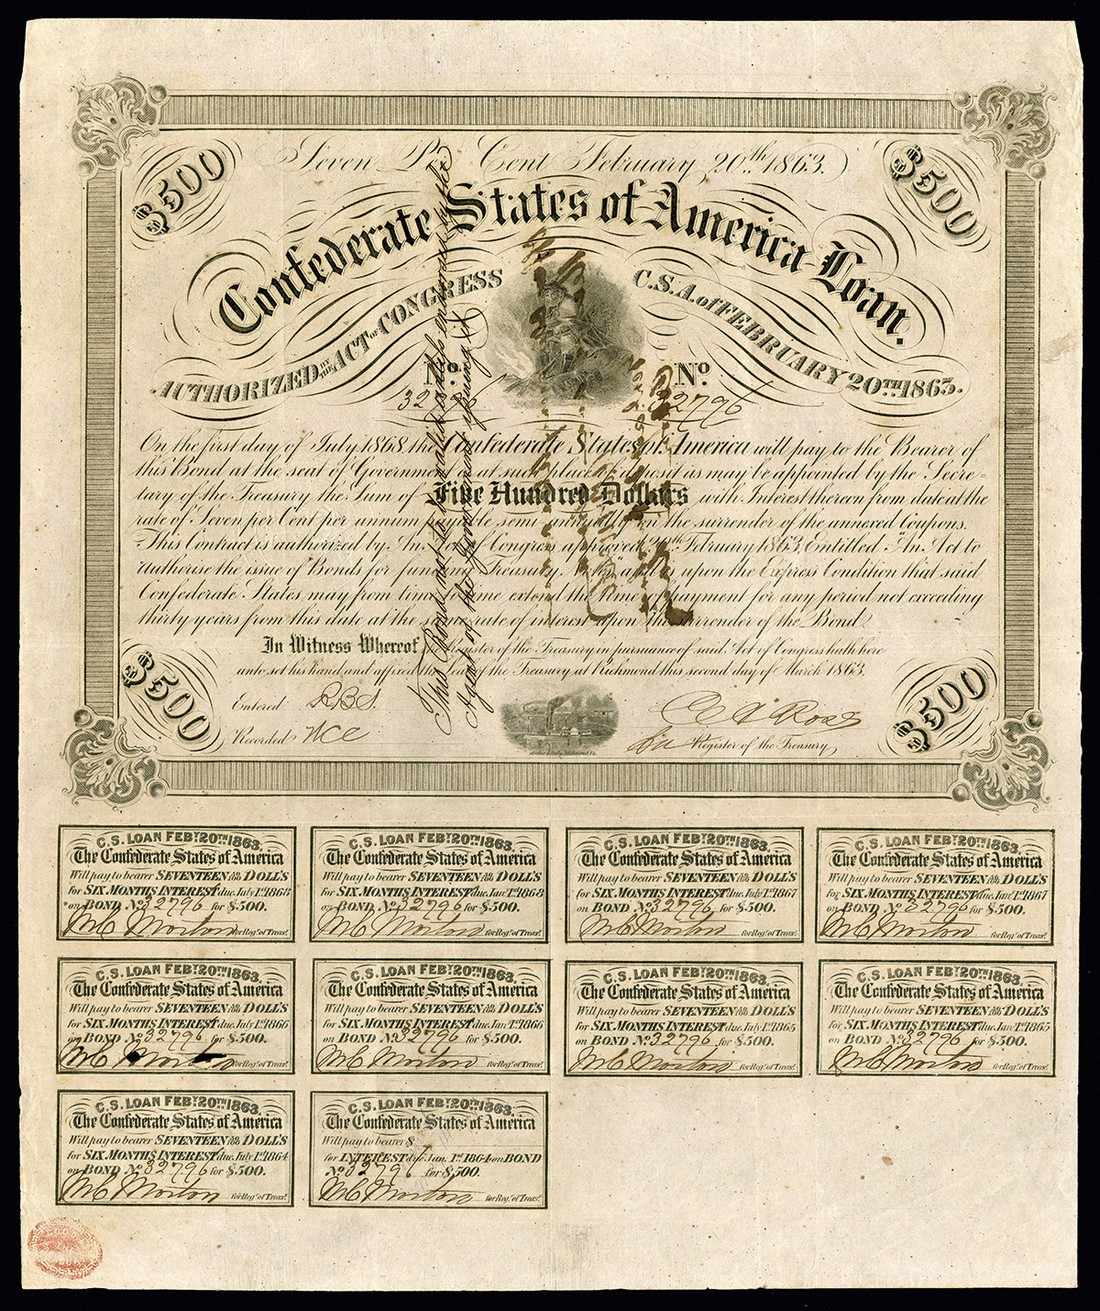 $500
$500
Seven Pr Cent February 20th 1863.
Confederate States of America Loan.
AUTHORIZED BY THE ACT OF CONGRESS C.S.A. of FEBRUARY 20TH 1863.
No. No.
32796 32796
On the first day of July 1868, the Confederate States of America will pay to the Bearer of
this Bond at the seat of Government or at such place of deposit as may be appointed by the Secre-
tary of the Treasury the Sum of Five Hundred Dollars with Interest thereon from date at the
rate of Seven per Cent per annum payable semi annually on the surrender of the annexed Coupons.
This Contract is authorized by An Act of Congress, approved 20th February 1863, Entitled "An Act to
authorise the issue of Bonds for funding Treasury Notes, and is upon the Express Condition that said
Confederate States may from time to time extend the time of payment for any period not exceeding
thirty years from this date at the same rate of interest upon the surrender of the Bond.
In Witness Whereof, the Register of the Treasury in pursuance of said Act of Congress hath here
unto set his hand and affixed the Seal of the Treasury at Richmond this second day of March 1863.
$500
$500
Entered RBS.
Recorded WCC
Register of the Treasury
This Bond not to be valid until endorsed by the
Agent of the Government issuing it
C.S. LOAN FEBY. 20TH 1863.
The Confederate States of America
Will pay to bearer SEVENTEEN 50/100 DOLL'S
for SIX MONTHS INTEREST due July 1st 1868
on BOND No. 32796 for $500.
WC Morton for Regr. of Treasy.
C.S. LOAN FEBY. 20TH 1863.
The Confederate States of America
Will pay to bearer SEVENTEEN 50/100 DOLL'S
for SIX MONTHS INTEREST due Jany 1st 1868
on BOND No. 32796 for $500.
WC Morton for Regr. of Treasy.
C.S. LOAN FEBY. 20TH 1863.
The Confederate States of America
Will pay to bearer SEVENTEEN 50/100 DOLL'S
for SIX MONTHS INTEREST due July 1st 1867
on BOND No. 32796 for $500.
WC Morton for Regr. of Treasy.
C.S. LOAN FEBY. 20TH 1863.
The Confederate States of America
Will pay to bearer SEVENTEEN 50/100 DOLL'S
for SIX MONTHS INTEREST due Jany 1st 1867
on BOND No. 32796 for $500.
WC Morton for Regr. of Treasy.
C.S. LOAN FEBY. 20TH 1863.
The Confederate States of America
Will pay to bearer SEVENTEEN 50/100 DOLL'S
for SIX MONTHS INTEREST due July 1st 1866
on BOND No. 32796 for $500.
WC Morton for Regr. of Treasy.
C.S. LOAN FEBY. 20TH 1863.
The Confederate States of America
Will pay to bearer SEVENTEEN 50/100 DOLL'S
for SIX MONTHS INTEREST due Jany 1st 1866
on BOND No. 32796 for $500.
WC Morton for Regr. of Treasy.
C.S. LOAN FEBY. 20TH 1863.
The Confederate States of America
Will pay to bearer SEVENTEEN 50/100 DOLL'S
for SIX MONTHS INTEREST due July 1st 1865
on BOND No. 32796 for $500.
WC Morton for Regr. of Treasy.
C.S. LOAN FEBY. 20TH 1863.
The Confederate States of America
Will pay to bearer SEVENTEEN 50/100 DOLL'S
for SIX MONTHS INTEREST due Jany 1st 1865
on BOND No. 32796 for $500.
WC Morton for Regr. of Treasy.
C.S. LOAN FEBY. 20TH 1863.
The Confederate States of America
Will pay to bearer SEVENTEEN 50/100 DOLL'S
for SIX MONTHS INTEREST due July 1st 1864
on BOND No. 32796 for $500.
WC Morton for Regr. of Treasy.
C.S. LOAN FEBY. 20TH 1863.
The Confederate States of America
Will pay to bearer $
for INTEREST due Jan. 1st 1864 on BOND
No. 32796 for $500.
WC Morton for Regr. of Treasy.